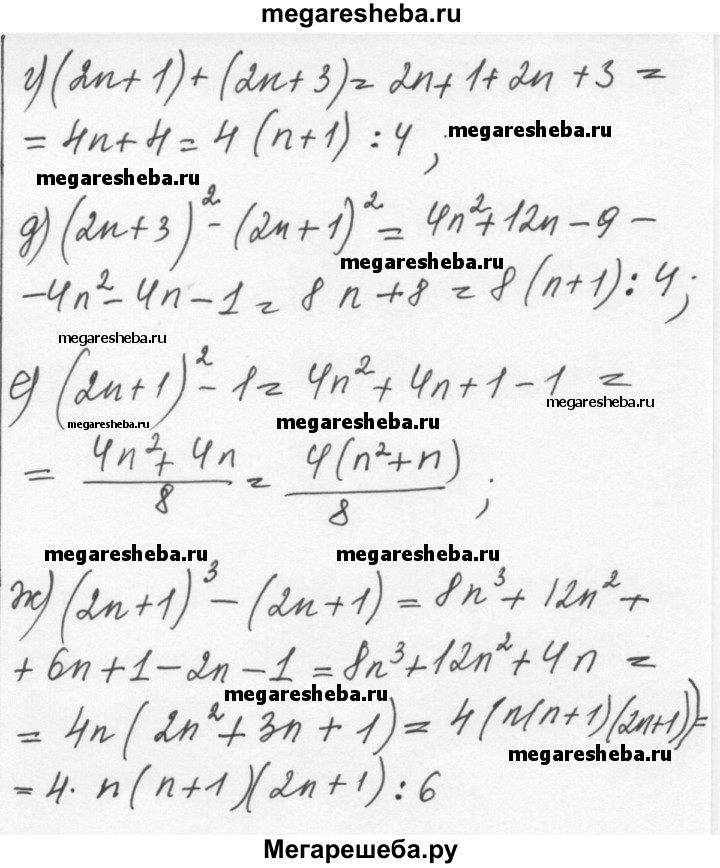 megaresheba.ru
г) (2n+1)+(2n+3)= 2n+1+2n+3 =
= 4n+4 = 4(n+1) : 4 ;
megaresheba.ru
megaresheba.ru
д) (2n+3)² - (2n+1)² = 4n²+12n-9-
megaresheba.ru
-4n²-4n-1 = 8n+8 = 8(n+1) : 4 ;
megaresheba.ru
е) (2n+1)² - 1 = 4n²+4n+1-1 =
megaresheba.ru
megaresheba.ru megaresheba.ru
= (4n²+4n)/8 = 4(n²+n)/8 ;
megaresheba.ru megaresheba.ru
ж) (2n+1)³ - (2n+1) = 8n³+12n²+
+6n+1-2n-1 = 8n³+12n²+4n =
megaresheba.ru
= 4n(2n²+3n+1) = 4(n(n+1)(2n+1)) =
megaresheba.ru
= 4· n(n+1)(2n+1) : 6
Мегарешеба.ру